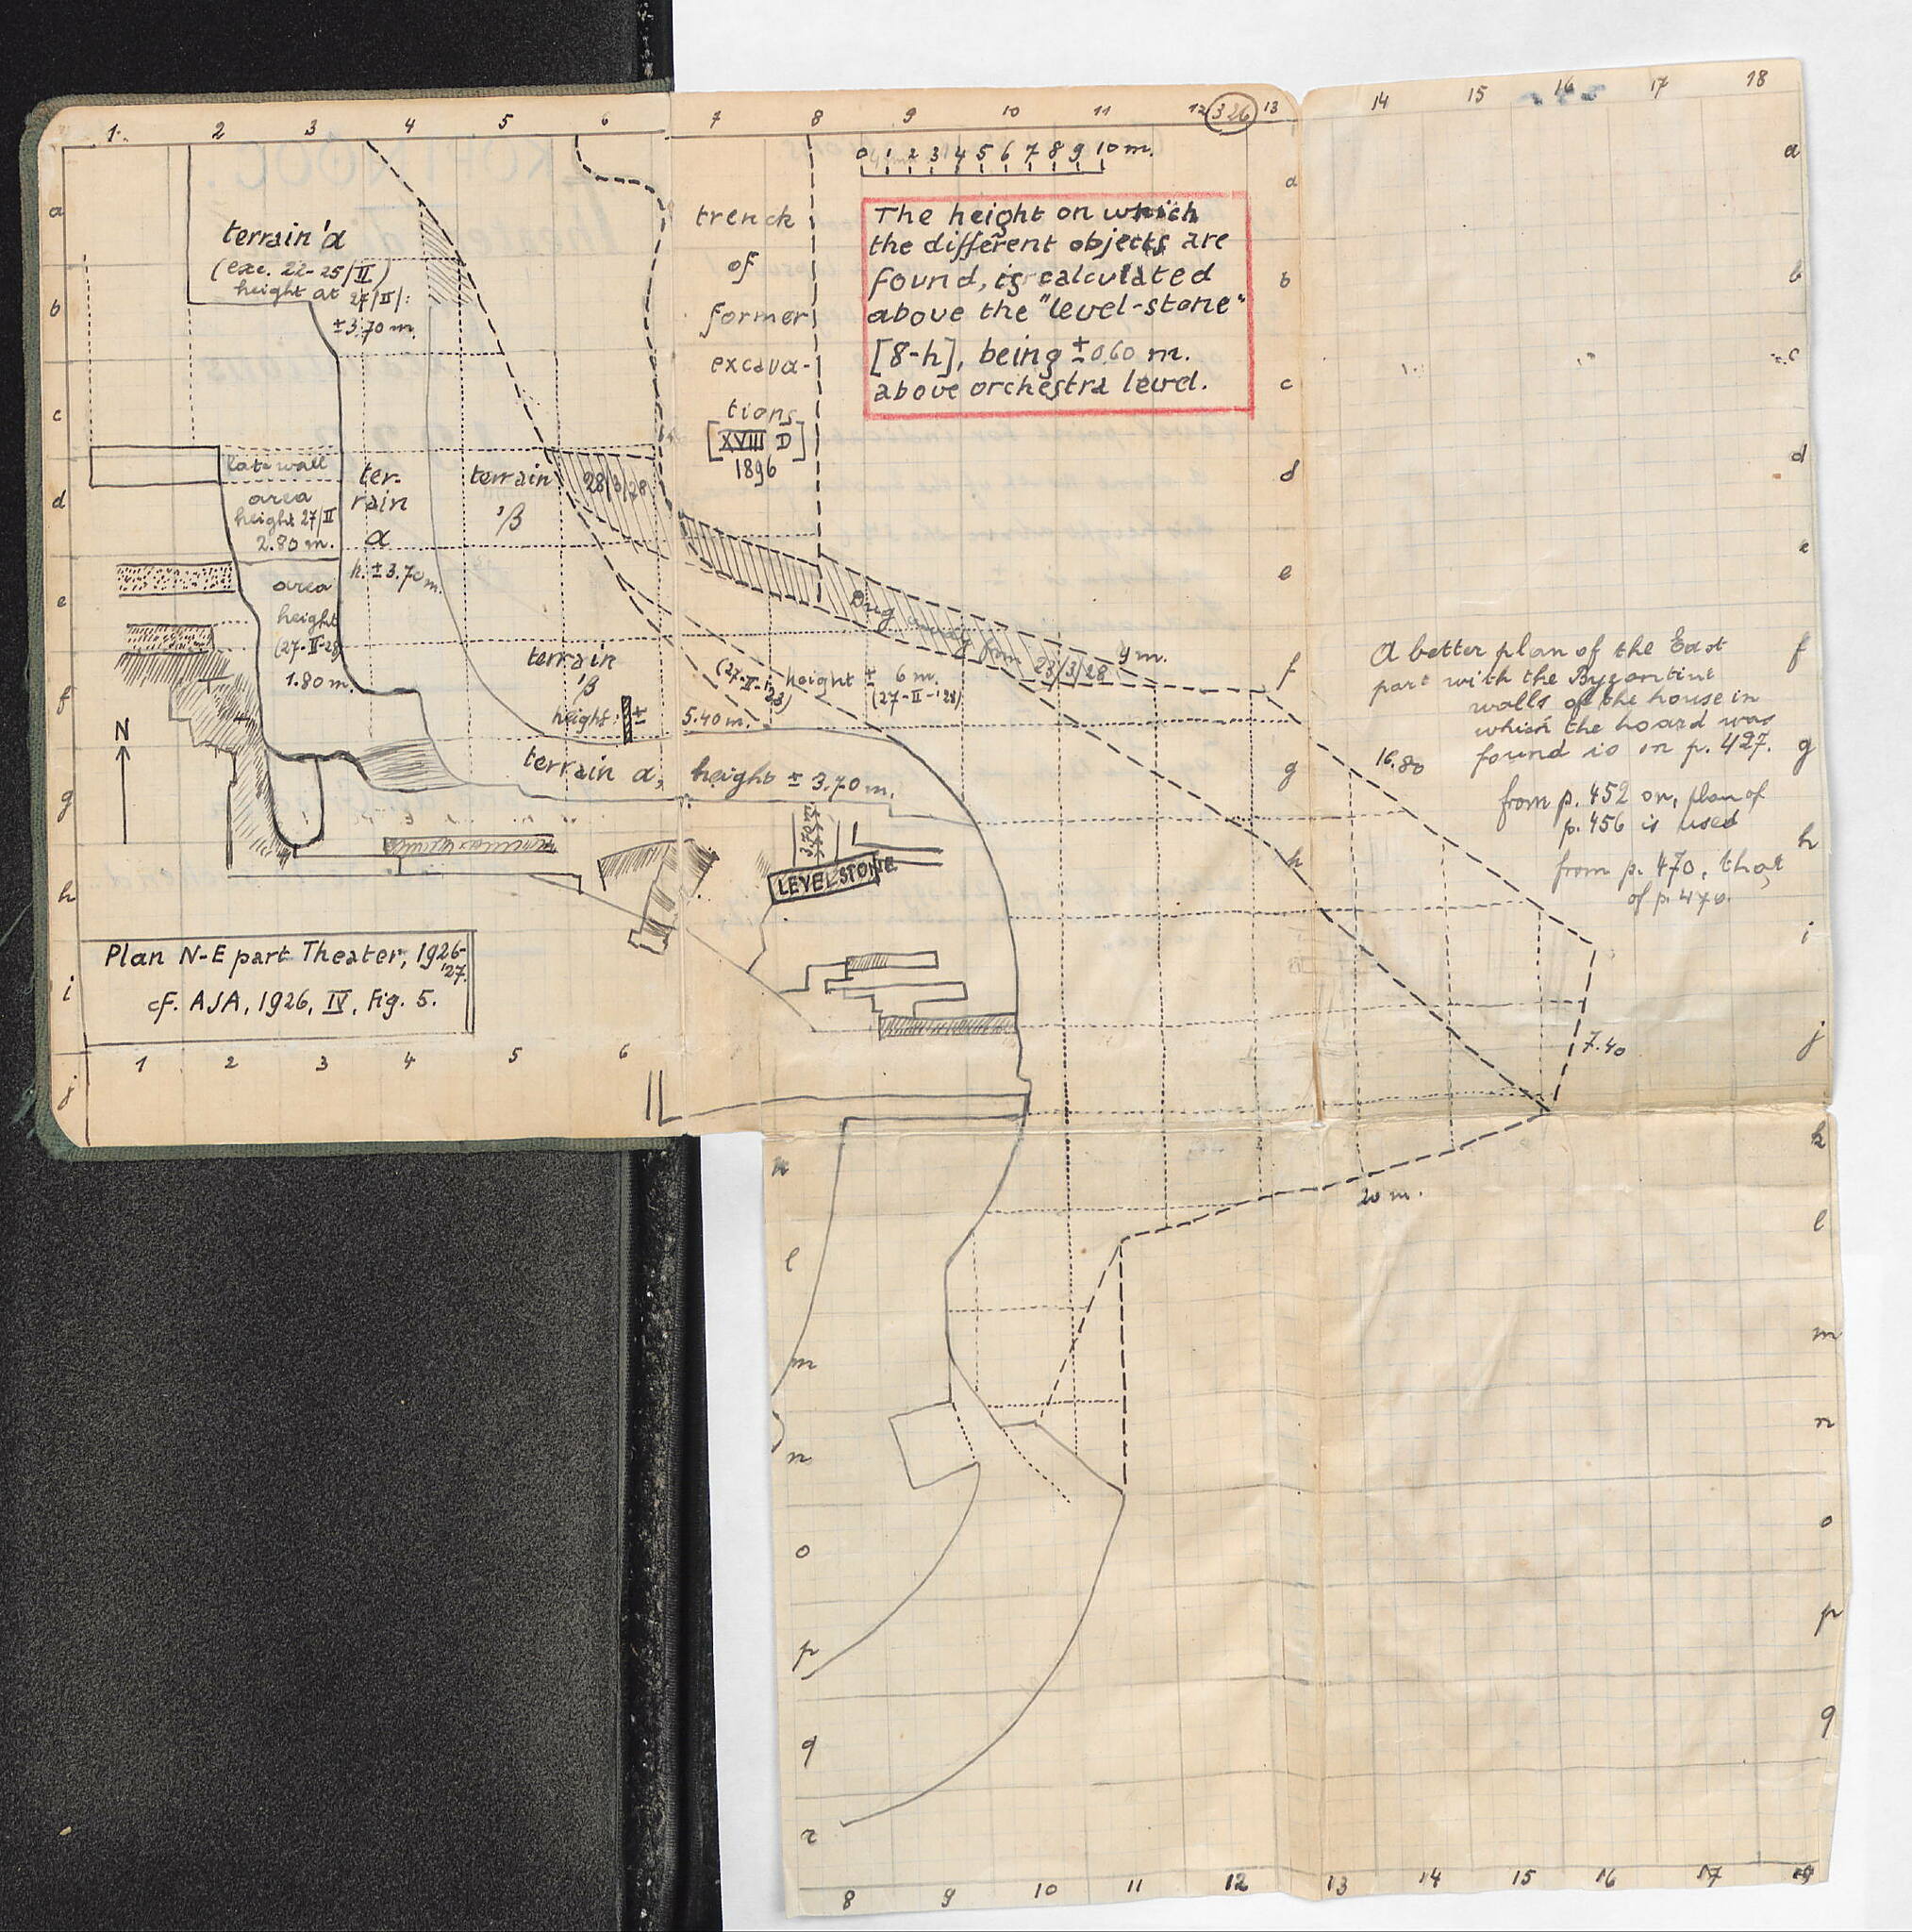 1. 2 3 4 5 6 7 8 9 10 11 12 326 13 14 15 16 17 18
0 1 2 3 4 5 6 7 8 9 10 m.
a
b
c
d
e
f
g
h
i
j
terrain 'α
(exc. 22-25/II)
height at 27/II:
±3.70 m.
late wall
area
height 27/II
2.80 m.
area
height
(27-II-28)
1.80 m.
ter-
rain
α
h. ±3.70 m.
terrain
'β
28/3/28
terrain
'β
height: ±
5.40 m.
(27-II-'28)
terrain α, height ± 3.70 m.
trench
of
former
excava-
tions
[XVIII D]
1896
The height on which
the different objects are
found, is calculated
above the "level-stone"
[8-h], being ±0.60 m.
above orchestra level.
a
b
c
d
e
f
g
h
Dug away from 23/3/28
4 m.
height ± 6 m.
(27-II-'28)
3.70 m
LEVELSTONE
N
Plan N-E part Theater, 1926-
'27.
cf. AJA, 1926, IV, Fig. 5.
1 2 3 4 5 6
A better plan of the East
part with the Byzantine
walls of the house in
which the hoard was
found is on p. 427.
from p. 452 on, plan of
p. 456 is used
from p. 470, that
of p. 470.
16.80
7.40
20 m.
a
b
c
d
e
f
g
h
i
j
k
l
m
n
o
p
q
k
l
m
n
o
p
q
r
8 9 10 11 12 13 14 15 16 17 18